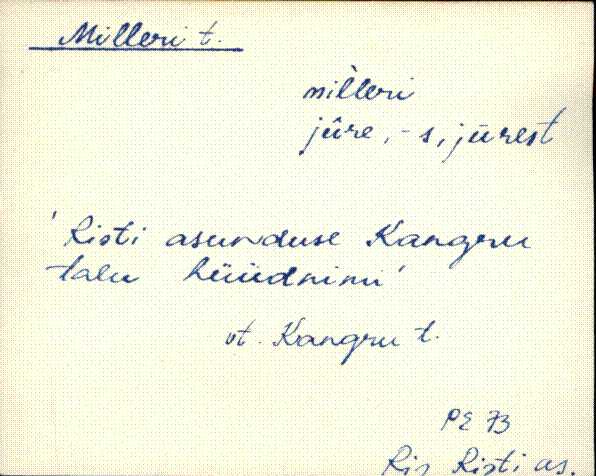 Milleri t.
mìlleri
jûre, -s, jūrest
'Risti asunduse Kangru
talu hüüdnimi'
vt. Kangru t.
PE 73
Ris Risti as.